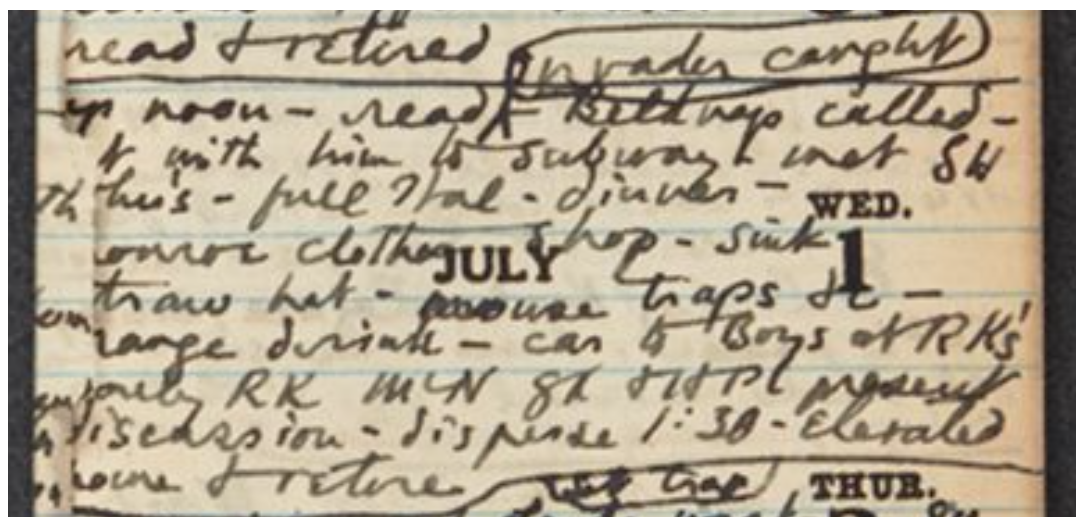 read & retired
invader caught
up noon - read - Belknap called -
with him to subway & met SH
- full Ital. dinner -
WED.
clothes shop - sink
JULY 1
straw hat - mouse traps &c -
orange drink - car to Boys at RK's
RK McN GK & HPL present
discussion - disperse 1:30 - Elevated
home & retire
set trap
THUR.